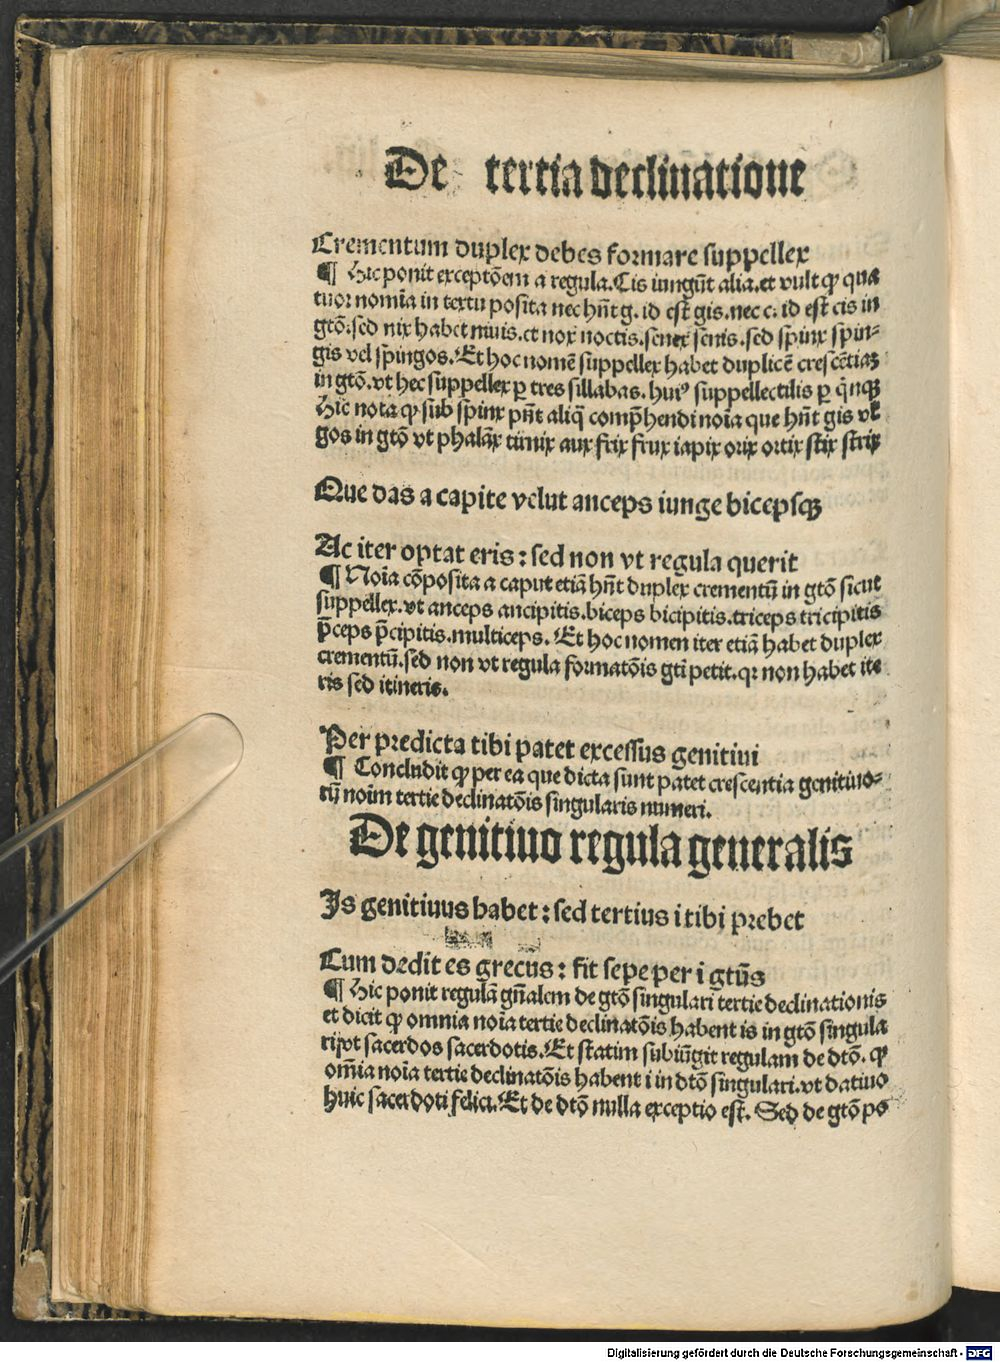 De tertia declinatione
Crementum duplex debes formare suppellex
¶ Hic ponit exceptōem a regula. Cis iungūt alia. et vult ꝙ qua
tuor nomīa in textu posita nec hn̄t g. id est gis. nec c. id est cis in
gtō. sed nix habet niuis. et nox noctis. senex senis. sed spinx spin-
gis vel spingos. Et hoc nomē suppellex habet duplicē crescētiaꝫ
in gtō. vt hec suppellex ꝑ tres sillabas. huiꝰ suppellectilis ꝑ qͥnqꝫ
Hic nota ꝙ sub spinx pn̄t aliq̄ comp̄hendi noīa que hn̄t gis vl̓
gos in gtō vt phalāx tinnix aux frix frux iapix orix ortix stix strix
Que das a capite velut anceps iunge bicepsqꝫ
Ac iter optat eris : sed non vt regula querit
¶ Noīa cōposita a caput etiā hn̄t duplex crementū in gtō sicut
suppellex. vt anceps ancipitis. biceps bicipitis. triceps tricipitis
p̄ceps p̄cipitis. multiceps. Et hoc nomen iter etiā habet duplex
crementū. sed non vt regula formatōis gti petit. qꝛ non habet ite
ris sed itineris.
Per predicta tibi patet excessus genitiui
¶ Concludit ꝙ per ea que dicta sunt patet crescentia genitiuo-
rū noīm tertie declinatōis singularis numeri.
De genitiuo regula generalis
Is genitiuus habet : sed tertius i tibi prebet
Cum dedit es grecus : fit sepe per i gtūs
¶ Hic ponit regulā gn̄alem de gtō singulari tertie declinationis
et dicit ꝙ omnia noīa tertie declinatōis habent is in gtō singula
ri. vt sacerdos sacerdotis. Et statim subiūgit regulam de dtō. ꝙ
om̄ia noīa tertie declinatōis habent i in dtō singulari. vt datiuo
huic sacerdoti felici. Et de dtō nulla exceptio est. Sed de gtō po
Digitalisierung gefördert durch die Deutsche Forschungsgemeinschaft - DFG